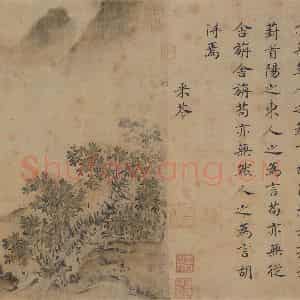 葑首陽之東人之為言苟亦無從
舍旃舍旃苟亦無然人之為言胡
得焉
采苓
Shufawang.cn